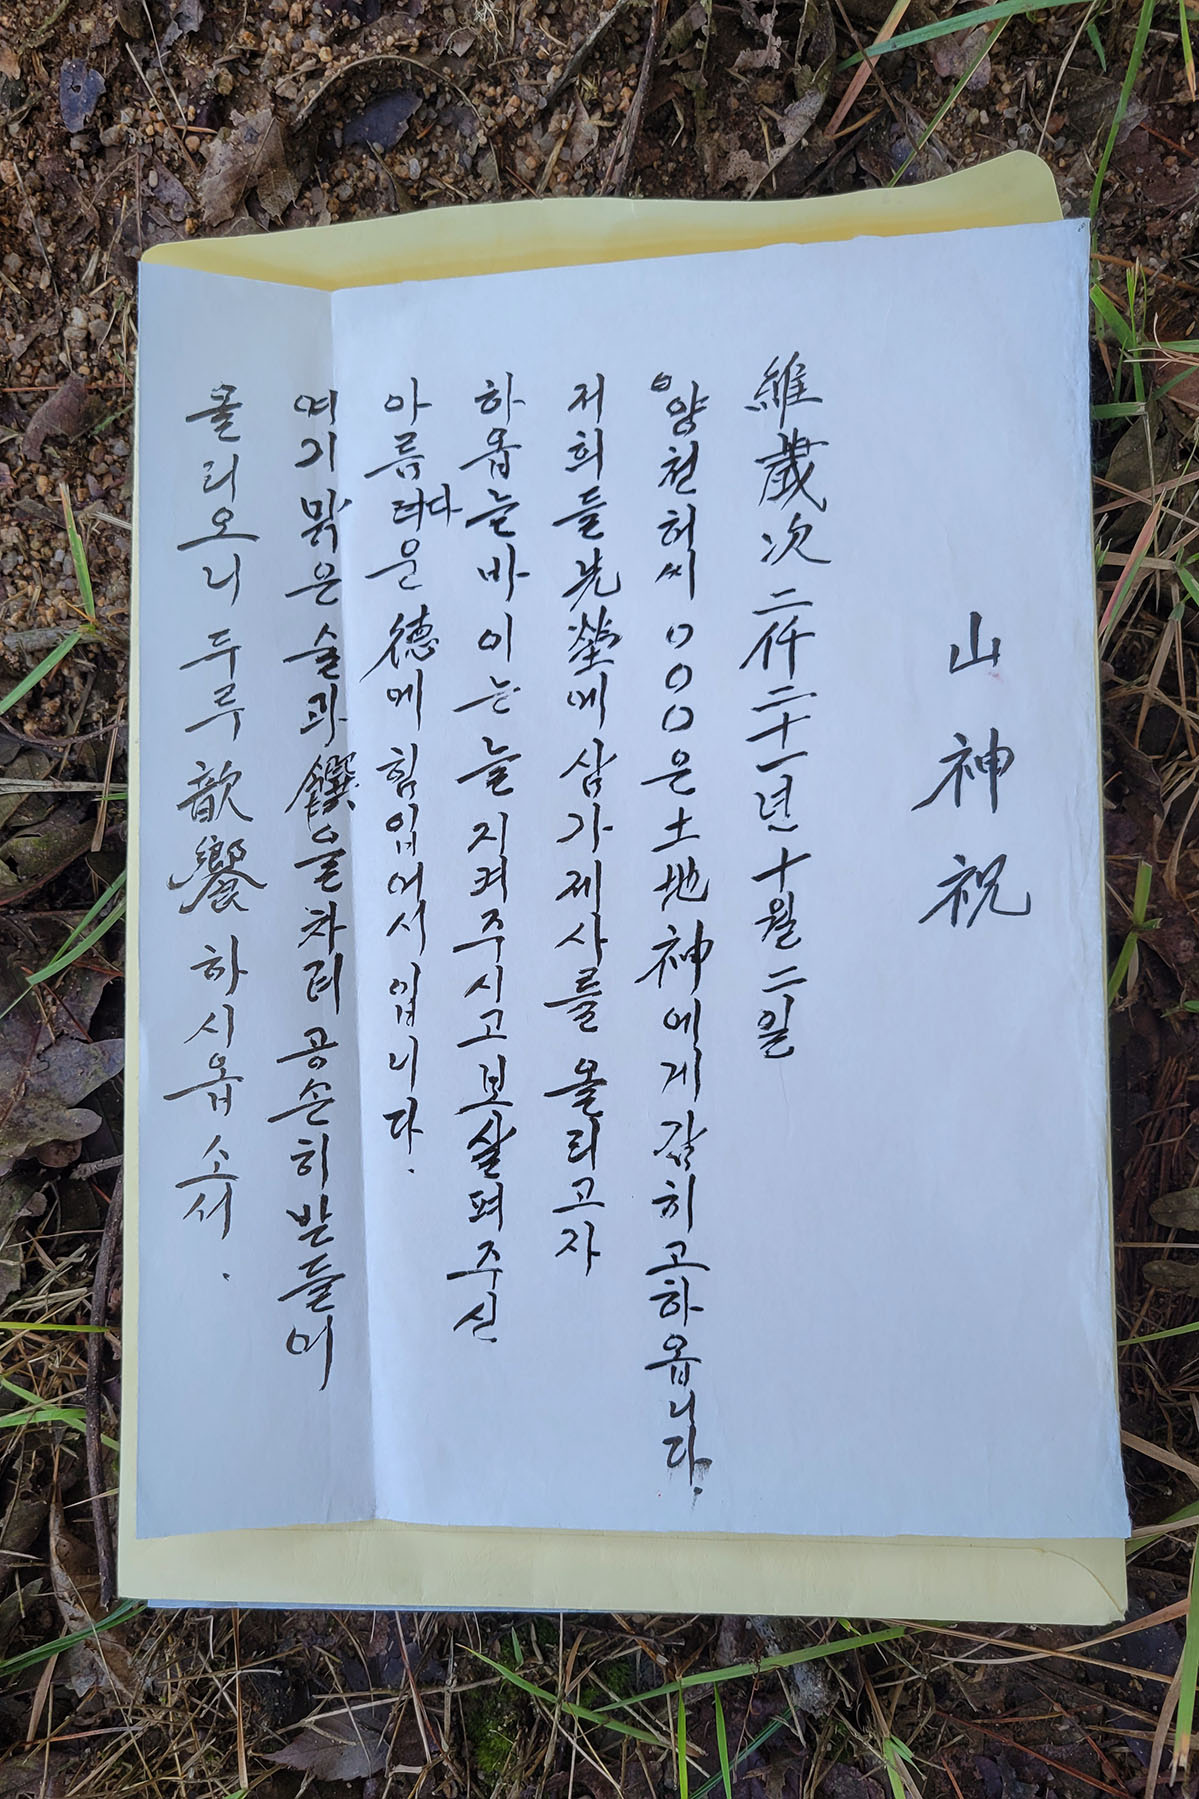 山神祝
維歲次 二仟二十一년 十월 二일
양천허씨 000은 土地神에게 감히 고하옵니다.
저희들 先塋에 삼가 제사를 올리고자
하옵는바 이는 늘 지켜주시고 보살펴주신
아름다운 德에 힘입어서 입니다.
여기 맑은 술과 饌을 차려 공손히 받들어
올리오니 두루 歆饗 하시옵소서.